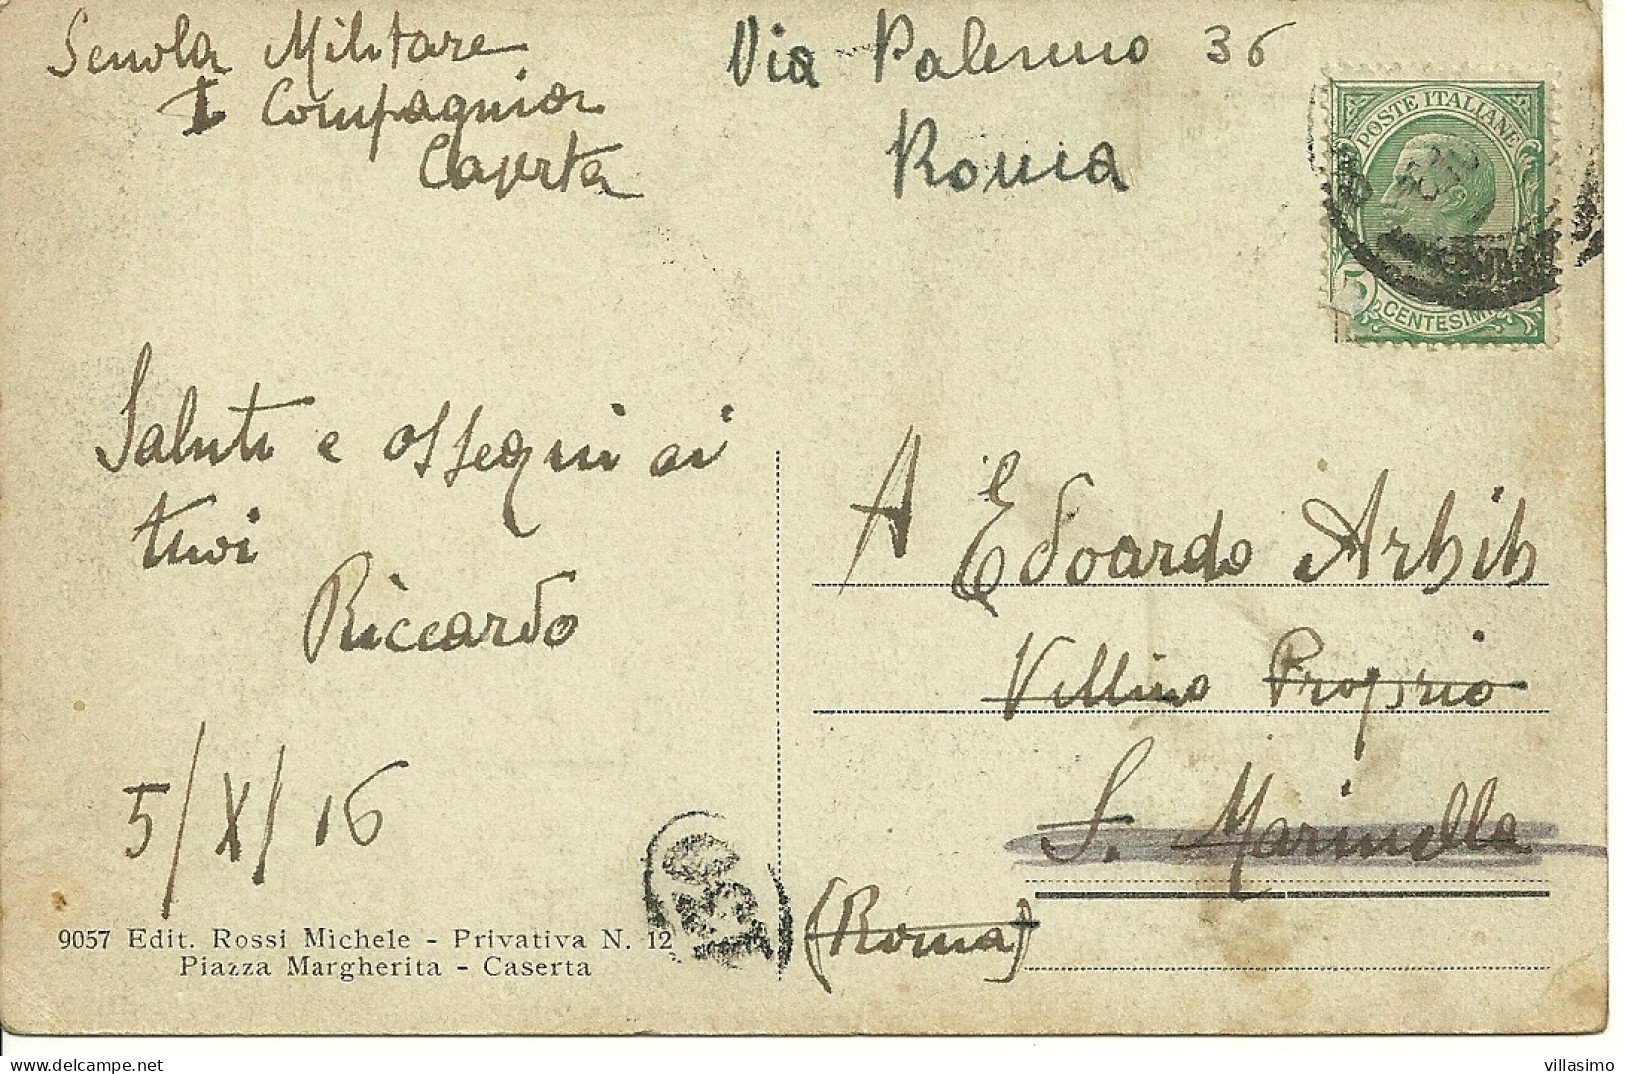 Scuola Militare
I Compagnia
Caserta
Via Palermo 36
Roma
POSTE ITALIANE
5
CENTESIMI
Saluti e ossequi ai
tuoi
Riccardo
5/X/16
A Edoardo Arbib
Villino Proprio
S. Marinella
(Roma)
9057 Edit. Rossi Michele - Privativa N. 12
Piazza Margherita - Caserta
villasimo